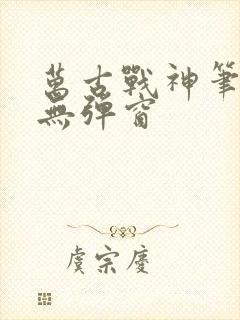 萬古戰神筆
無彈窗
虞宗慶